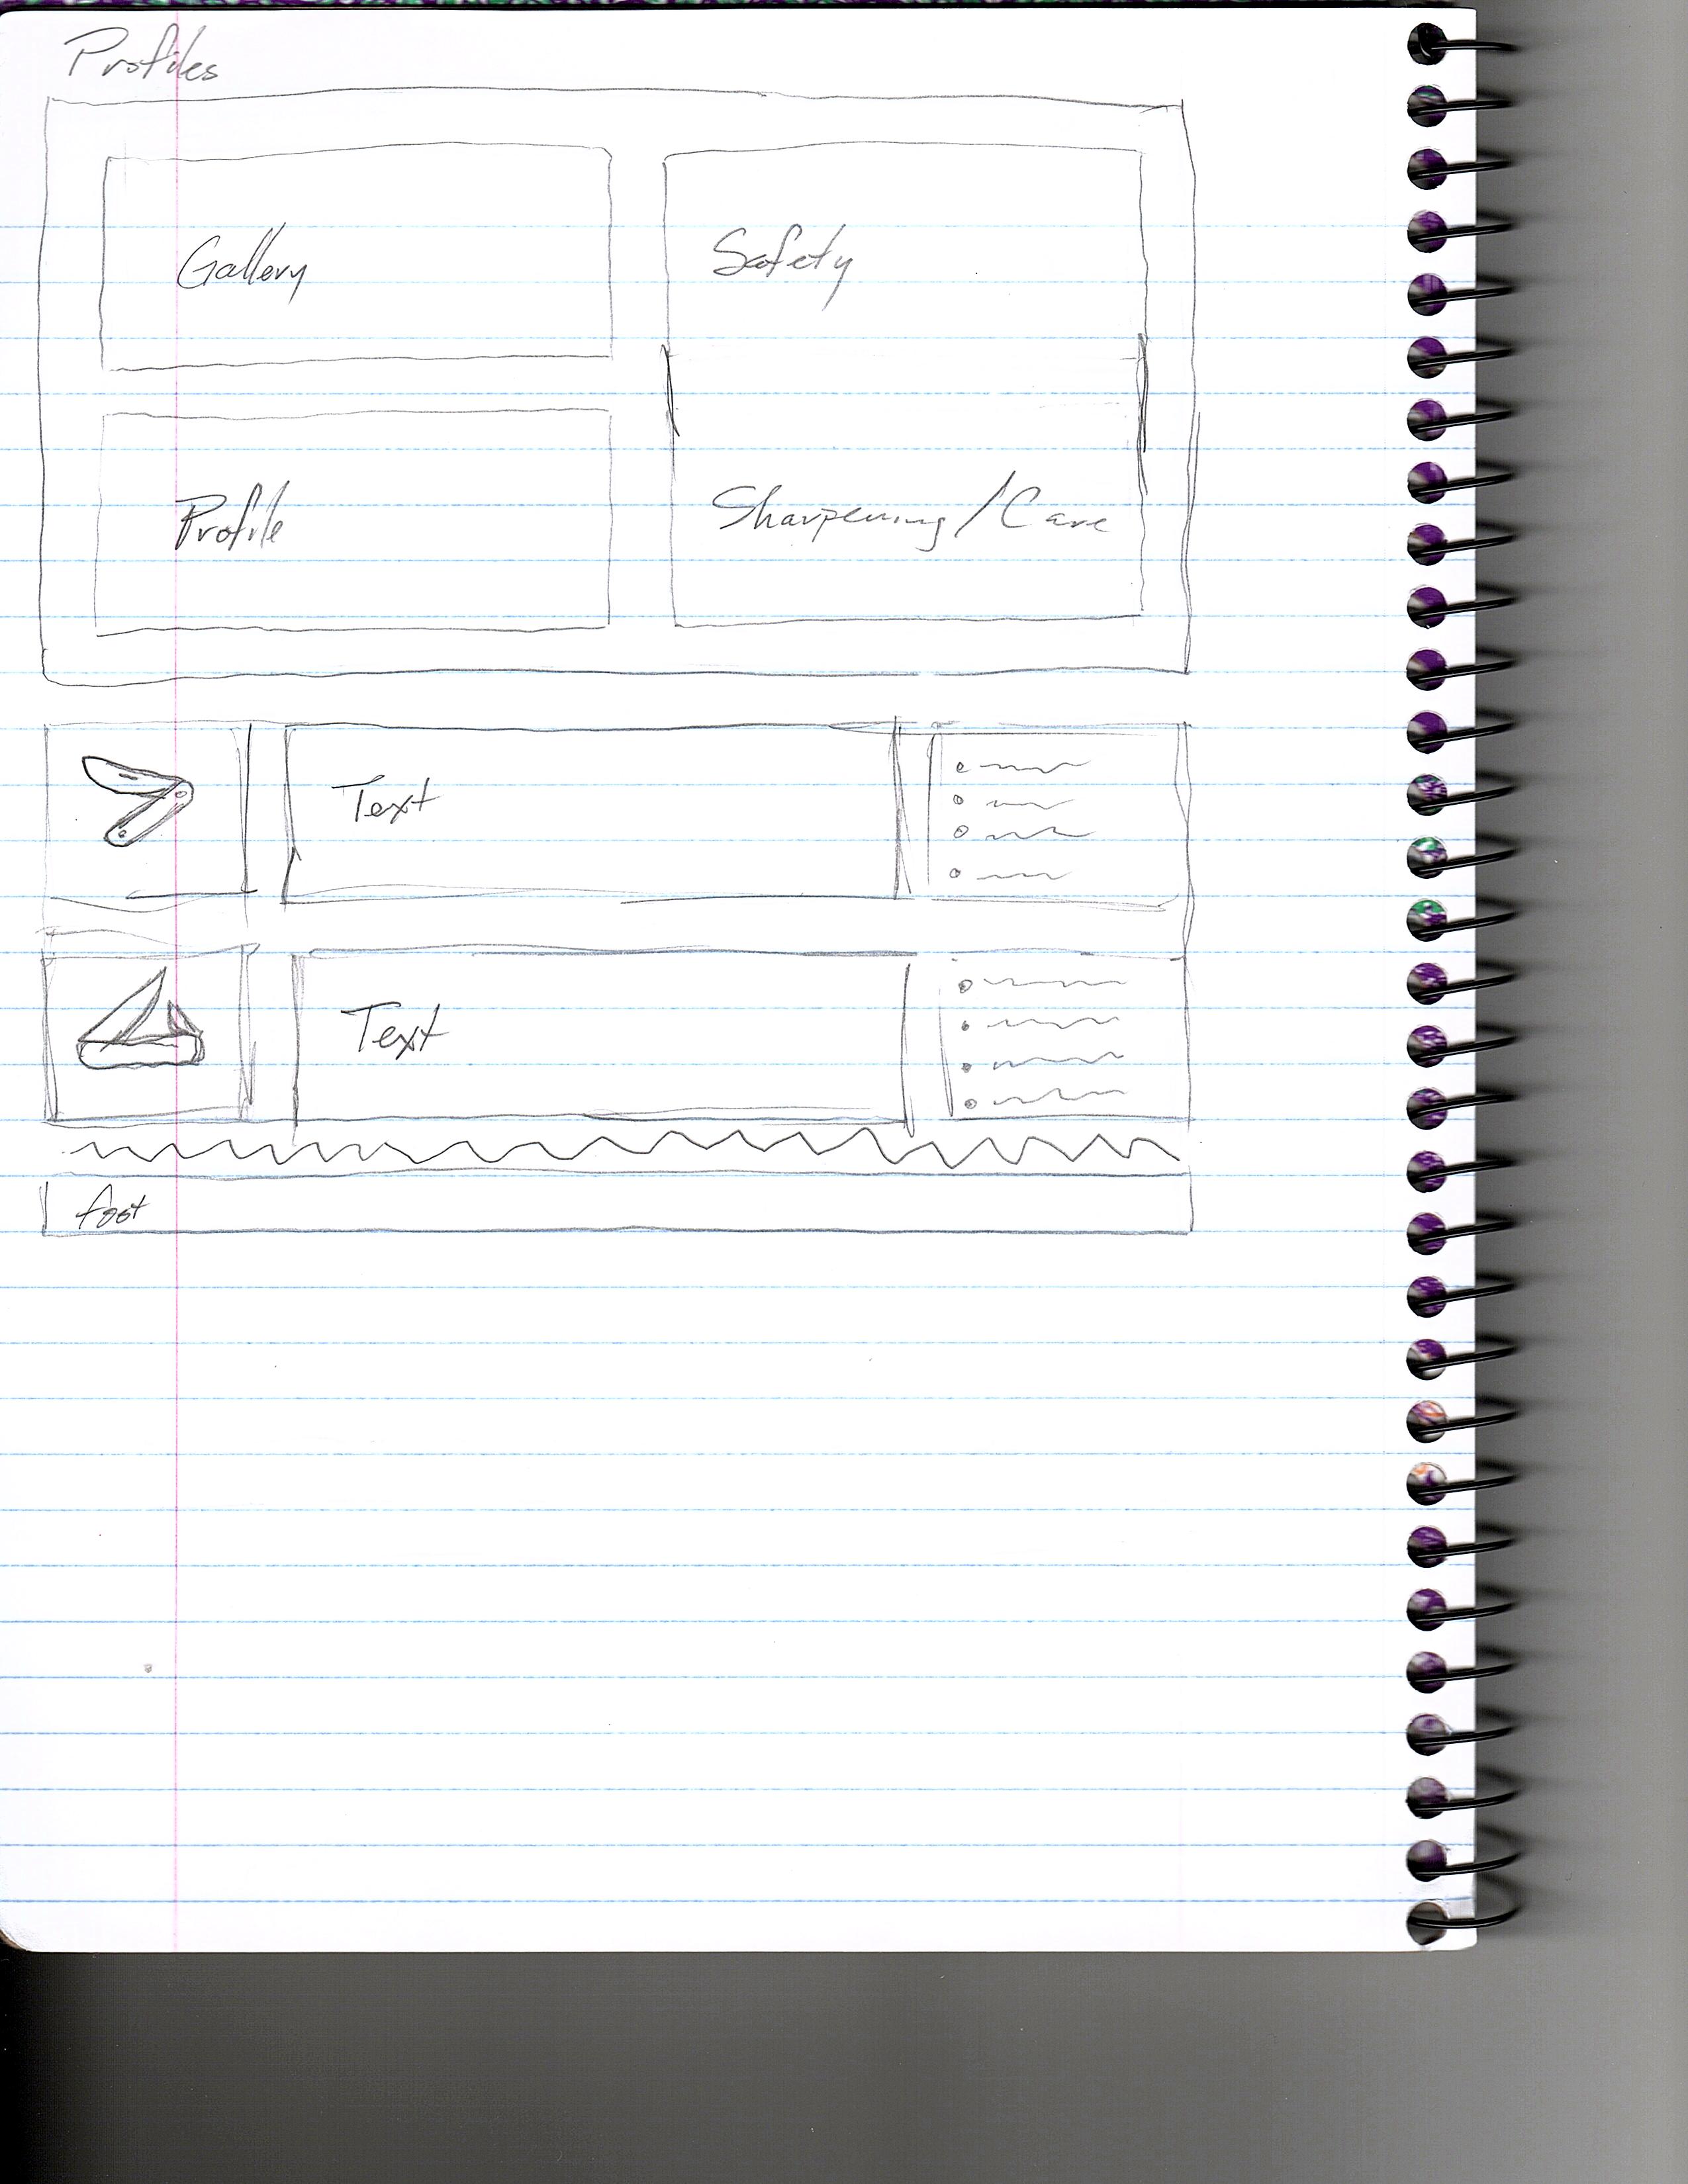 Profiles
Gallery
Safety
Profile
Sharpening/Care
Text
Text
foot